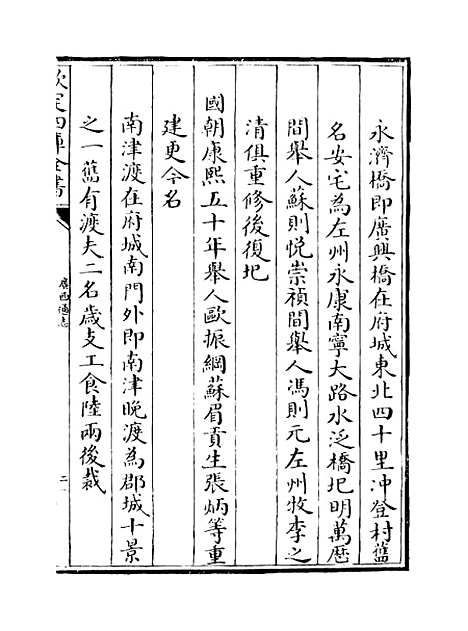 永濟橋即廣興橋在府城東北四十里沖登村舊
名安宅為左州永康南寧大路水泛橋圮明萬歴
間舉人蘇則悦崇禎間舉人馮則元左州牧李之
清俱重修後復圮
國朝康熙五十年舉人歐振綱蘇眉貢生張炳等重
建更今名
南津渡在府城南門外即南津晚渡為郡城十景
之一舊有渡夫二名歳支工食陸兩後裁
欽定四庫全書
廣西通志